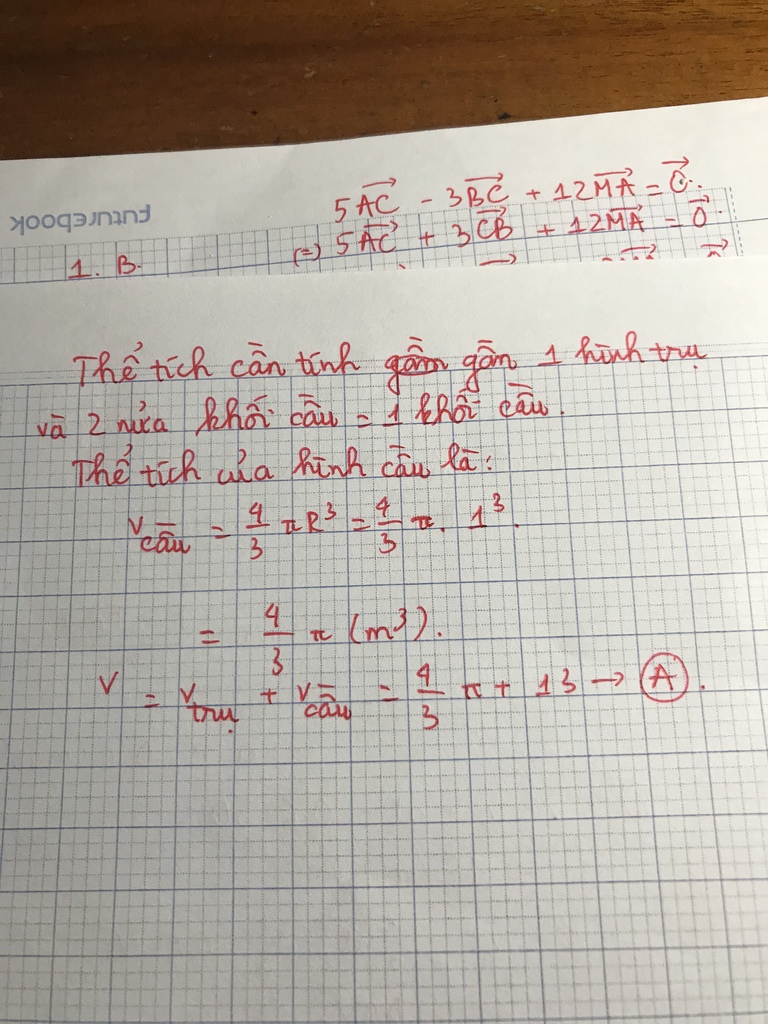 5AC⃗ - 3BC⃗ + 12MA⃗ = 0⃗.
Futurebook
(=) 5AC⃗ + 3CB⃗ + 12MA⃗ = 0⃗.
1. B.
Thể tích cần tính gồm gồm 1 hình trụ
và 2 nửa khối cầu = 1 khối cầu.
Thể tích của hình cầu là:
V cầu = 4/3 πR³ = 4/3 π. 1³.
= 4/3 π (m³).
V = V trụ + V cầu = 4/3 π + 13 → A.